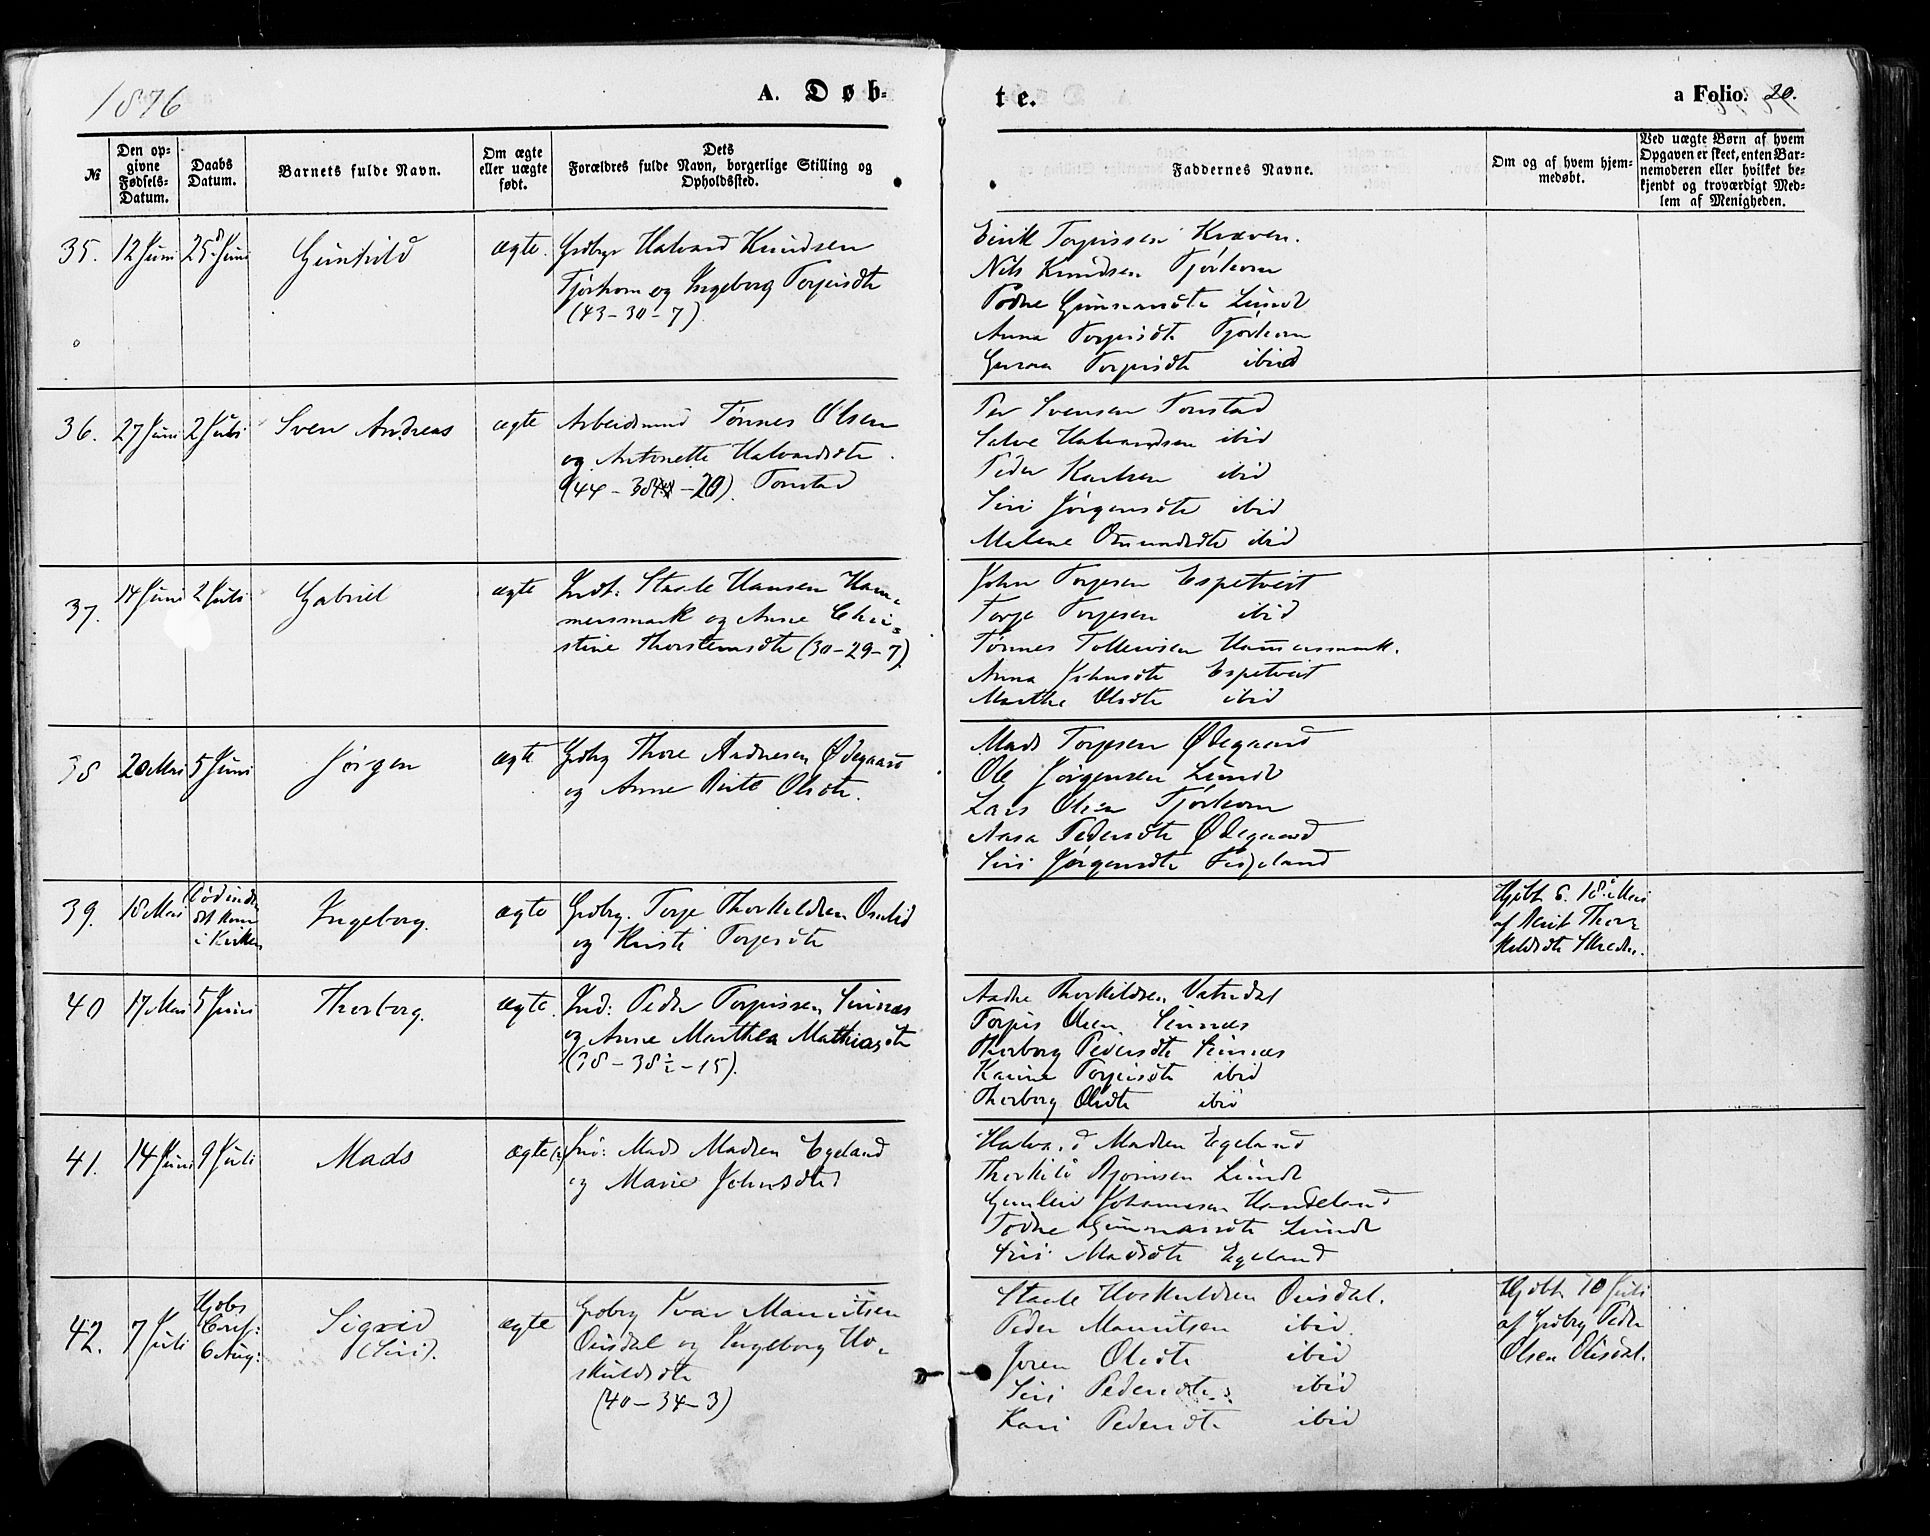 1876
A. Døb-
te.
a Folio. 20.
№
Den op-
givne
Fødsels-
Datum.
Daabs
Datum.
Barnets fulde Navn.
Om ægte
eller uægte
født.
Dets
Forældres fulde Navn, borgerlige Stilling og
Opholdssted.
Faddernes Navne.
Om og af hvem hjem-
medøbt.
Ved uægte Børn af hvem
Opgaven er skeet, enten Bar-
nemoderen eller hvilket be-
kjendt og troværdigt Med-
lem af Menigheden.
35.
12 Juni
25 Juni
Gunhild
ægte.
Grdbgr Halvard Knudsen
Tjørhom og Ingeborg Torjusdtr
(43-30-7)
Eirik Torjussen Kvæven.
Nils Knudsen Tjørhom
Todne Gunnarsdtr Lunde
Anna Torjusdtr Tjørhom
Torjusdtr ibid
36.
27 Juni
2 Juli
Sven Andreas
ægte
Arbeidsmand Tønnes Olsen
og Antonette Halvardsdtr
Tonstad
Per Svensen Tonstad
Salve Halvardsen ibid
Peder Karlsen ibid
Siri Jørgensdtr ibid
Malene Omundsdtr ibid
37.
14 Juni
2 Juli
Gabriel
ægte
Indt: Staale Hansen Ham-
mersmark og Anne Chri-
stine Thorstensdtr (30-29-7)
John Torjesen Espetveit
Torje Torjesen ibid
Tønnes Tollevsen Hammersmark.
Anna Johnsdtr Espetveit
Marthe Olsdtr ibid
38
20 Mai
5 Juni
Jørgen
ægte
Grdbg Thore Andresen Ødegaard
og Anne Birte Olsdtr.
Mads Torjesen Ødegaard
Ole Jørgensen Lunde
Lars Olsen Tjørhom
Aasa Pedersdtr Ødegaard
Siri Jørgensdtr Fidjeland
39.
18 Mai
Død inden
det kom
i Kirken
Ingeborg.
ægte
Grdbrg. Torje Thorkildsen Osulid
og Kirsti Torjesdtr
Hjdbt d. 18 Mai
af Berit Thor-
kildsdtr
40
17 Mai
5 Juni
Thorborg.
ægte.
Ind: Peder Torjussen Sinnes
og Anne Marthea Mathiasdtr
(38-38½-15).
Aadne Thorkildsen Vatndal
Torjus Olsen Sinnes
Thorborg Pedersdtr Sinnes
Karine Torjusdtr ibid
Thorborg Olsdtr ibid
41.
14 Juni
9 Juli
Mads
ægte
Ind: Mads Madsen Egeland
og Marie Johnsdtr
Halvard Madsen Egeland
Thorkild Bjørnsen Lunde
Gunleiv Johannesen Handeland
Todne Gunnarsdtr Lunde
Siri Madsdtr Egeland
42.
7 Juli
Hjdbs
Conf:
6 Aug:
Sigrid
(Siri).
ægte
Grdbrg Ivar Mauritsen
Ousdal og Ingeborg Ho-
skuldsdtr
(40-34-3)
Staale Hoskuldsen Ousdal.
Peder Mauritsen ibid.
Joren Olsdtr ibid
Siri Pedersdtr ibid
Kari Pedersdtr ibid
Hjdbt 10 Juli
af Grdbrg Peder
Olsen Ousdal.